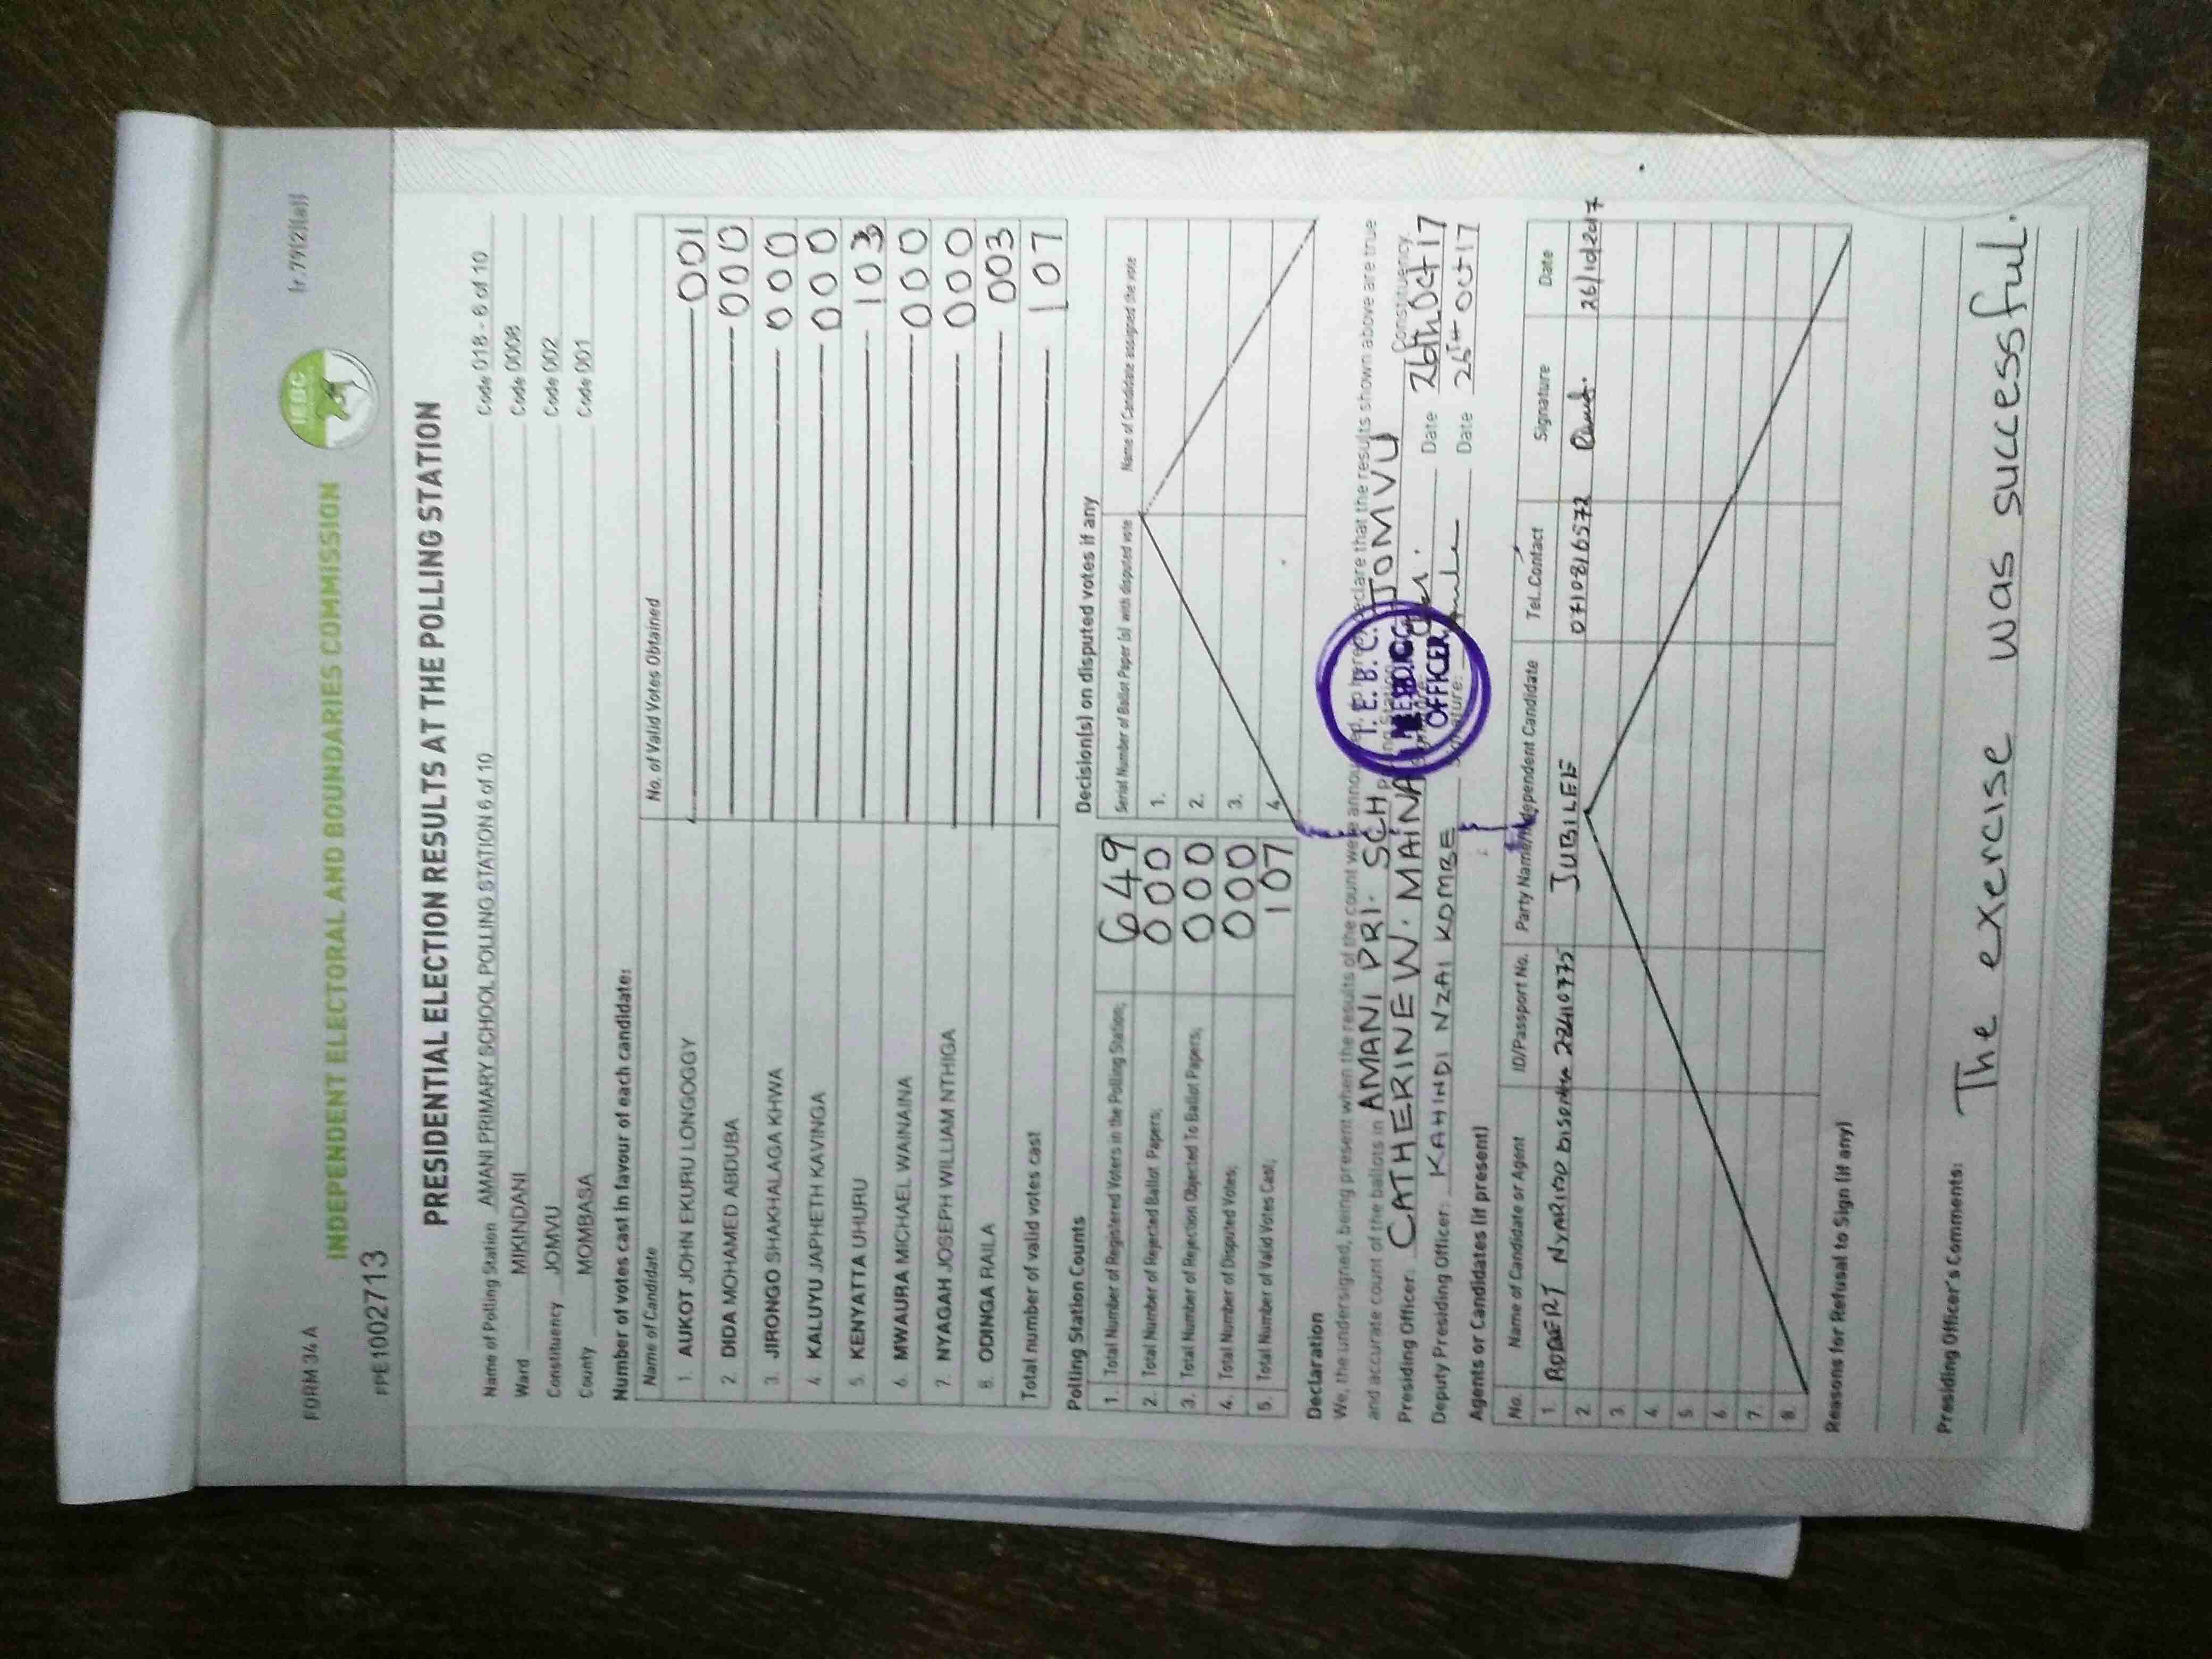 FORM 34 A
Ir 79(2)(a)]
FPE1002713
INDEPENDENT ELECTORAL AND BOUNDARIES COMMISSION
IEBC
PRESIDENTIAL ELECTION RESULTS AT THE POLLING STATION
Name of Polling Station AMANI PRIMARY SCHOOL POLLING STATION 6 of 10 Code 018 - 6 of 10
Ward MIKINDANI Code 0008
Constituency JOMVU Code 002
County MOMBASA Code 001
Number of votes cast in favour of each candidate:
Name of Candidate No. of Valid Votes Obtained
1. AUKOT JOHN EKURU LONGOGGY 001
2. DIDA MOHAMED ABDUBA 000
3. JIRONGO SHAKHALAGA KHWA 000
4. KALUYU JAPHETH KAVINGA 000
5. KENYATTA UHURU 103
6. MWAURA MICHAEL WAINAINA 000
7. NYAGAH JOSEPH WILLIAM NTHIGA 000
8. ODINGA RAILA 003
Total number of valid votes cast 107
Polling Station Counts
1. Total Number of Registered Voters in the Polling Station; 649
2. Total Number of Rejected Ballot Papers; 000
3. Total Number of Rejection Objected To Ballot Papers; 000
4. Total Number of Disputed Votes; 000
5. Total Number of Valid Votes Cast; 107
Decision(s) on disputed votes if any
Serial Number of Ballot Paper (s) with disputed vote Name of Candidate assigned the vote
1.
2.
3.
4.
Declaration
We, the undersigned, being present when the results of the count were declare that the results shown above are true
and accurate count of the ballots in AMANI PRI. SCH JOMVU Constituency.
Presiding Officer: CATHERINE W. MAINA Date 26th Oct 17
Deputy Presiding Officer: KAHINDI NZAI KOMBE Date 26TH OCT 17
I.E.B.C.
OFFICER
Agents or Candidates (if present)
No. Name of Candidate or Agent ID/Passport No. Party Name/Independent Candidate Tel.Contact Signature Date
1. ROBERT 22410775 JUBILEE 0710816572 26/10/2017
2.
3.
4.
5.
6.
7.
8.
Reasons for Refusal to Sign (if any)
Presiding Officer's Comments: The exercise was successful.